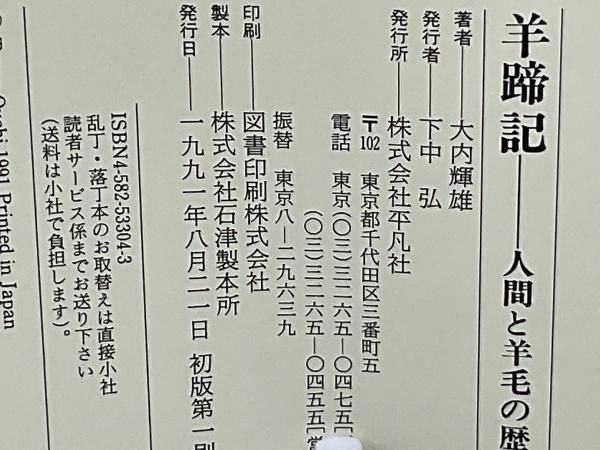 羊蹄記——人間と羊毛の歴
著者——大内輝雄
発行者——下中 弘
発行所——株式会社平凡社
〒102 東京都千代田区三番町五
電話 東京(〇三)三二六五—〇四七五[
(〇三)三二六五—〇四五五[営
振替 東京八—二九六三九
印刷——図書印刷株式会社
製本——株式会社石津製本所
発行日——一九九一年八月二一日 初版第一刷
ISBN4-582-53304-3
乱丁・落丁本のお取替えは直接小社
読者サービス係までお送り下さい
(送料は小社で負担します)。
1991 Printed in Japan